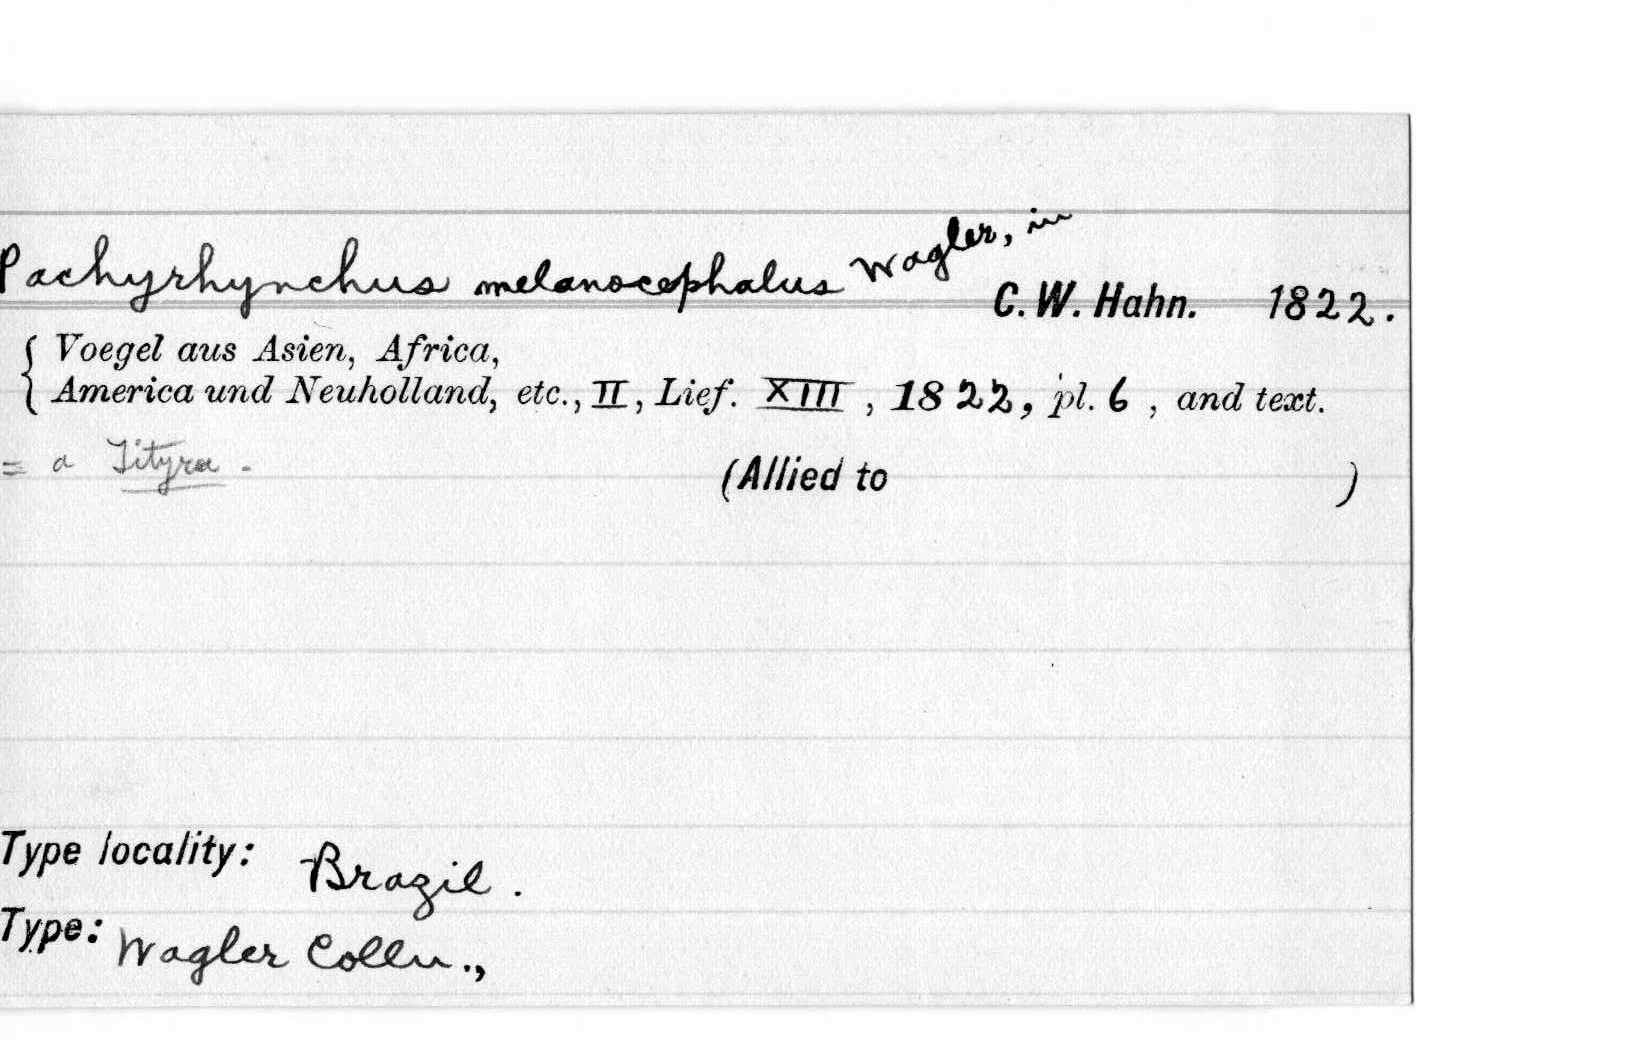 Pachyrhynchus melanocephalus Wagler, in
C. W. Hahn. 1822.
Voegel aus Asien, Africa,
America und Neuholland, etc., II, Lief. XIII, 1822, pl. 6, and text.
= a Tityra.
(Allied to )
Type locality: Brazil.
Type: Wagler Colln.,